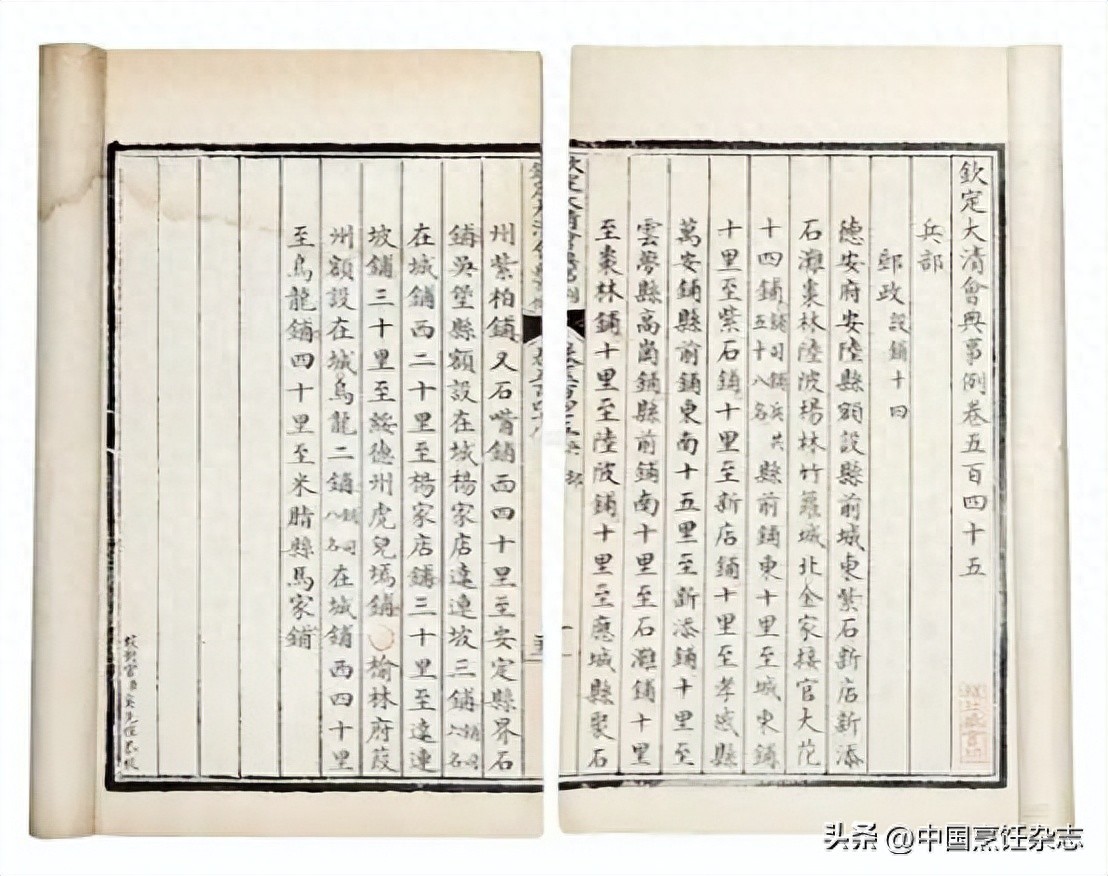 欽定大清會典事例卷五百四十五
兵部
郵政設鋪十四
德安府安陸縣額設縣前城東紫石新店新添
石灘棗林陸陂楊林竹蘿城北金家接官大花
十四鋪鋪司鋪兵共五十八名縣前鋪東十里至城東鋪
十里至紫石鋪十里至新店鋪十里至孝感縣
萬安鋪縣前鋪東南十五里至新添鋪十里至
雲夢縣高崗鋪縣前鋪南十里至石灘鋪十里
至棗林鋪十里至陸陂鋪十里至應城縣聚石
欽定大清會典事例
卷五百四十五 兵部
州紫柏鋪又石嘴鋪西四十里至安定縣界石
鋪吳堡縣額設在城楊家店遠連坡三鋪鋪司六名
在城鋪西二十里至楊家店鋪三十里至遠連
坡鋪三十里至綏德州虎兒墕鋪 榆林府葭
州額設在城烏龍二鋪鋪司八名在城鋪西四十里
至烏龍鋪四十里至米脂縣馬家鋪
头条 @中国烹饪杂志